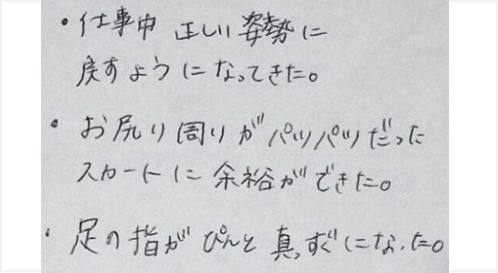 ・仕事中 正しい姿勢に
戻すようになってきた。
・お尻り周りがパツパツだった
スカートに余裕ができた。
・足の指がぴんと真っすぐになった。